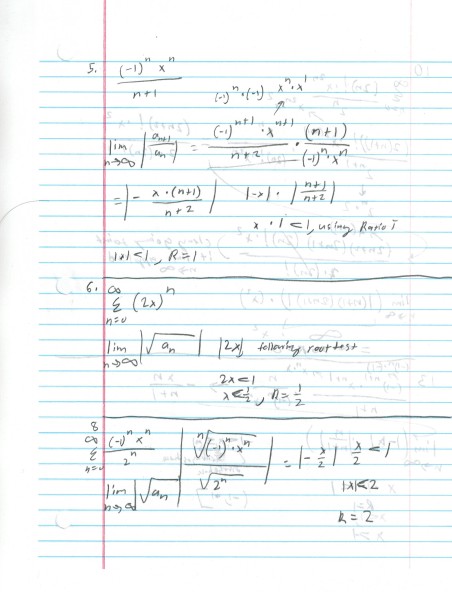 5. (-1)^n x^n / n+1
(-1)^n · (-1) x^n · x^1
lim n→∞ |a_{n+1} / a_n| = (-1)^{n+1} · x^{n+1} / n+2 · (n+1) / (-1)^n · x^n
= |- x · (n+1) / n+2| |-x| · |n+1 / n+2|
x · 1 < 1, using Ratio T
|x| < 1, R = 1
6. ∞ Σ n=0 (2x)^n
lim n→∞ |√a_n| |2x| following root test
2x < 1
x < 1/2, R = 1/2
8
∞ Σ n=0 (-1)^n x^n / 2^n | ⁿ√(-1)^n · x^n / √2^n | = |- x/2| x/2 < 1
lim n→∞ |√a_n| |x| < 2
R = 2